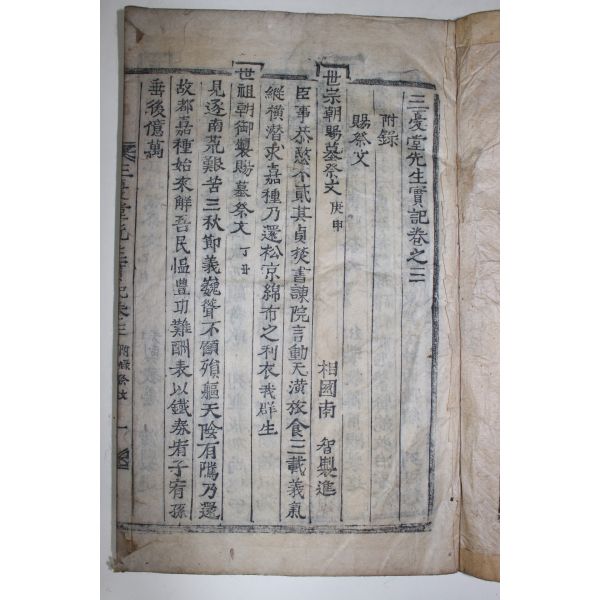 三憂堂先生實記卷之三
附錄
賜祭文
世宗朝賜墓祭文 庚申 相國南 智製進
臣事恭愍不貳其貞投書諫院言動天潢旅食三載義氣
縱橫潜求嘉種乃還松京綿布之利衣我群生
世祖朝御製賜墓祭文 丁丑
見逐南荒艱苦三秋節義巍聳不顧殞軀天陰有隲乃還
故都嘉種始來解吾民慍豊功難酬表以鐵券宥子宥孫
垂後億萬
三憂堂先生實記卷三 附錄祭文 一